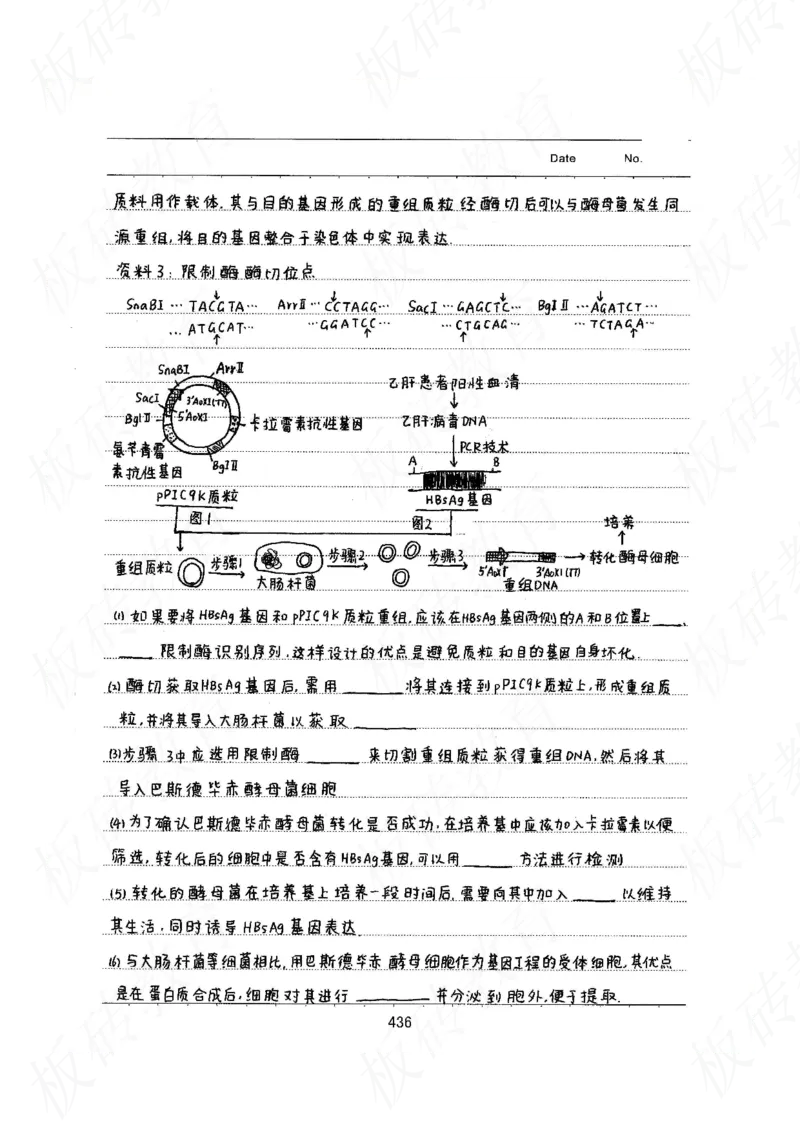 Date No.
质料用作载体,其与目的基因形成的重组质粒经酶切后可以与酶母菌发生同
源重组,将目的基因整合于染色体中实现表达.
资料3:限制酶酶切位点
SnaBI … TACGTA… AvrⅡ … CCTAGG… SacI … GAGCTC… BglⅡ … AGATCT…
… ATGCAT… … GGATCC… … CTCGAG… … TCTAGA…
SnaBI AvrⅡ
SacI 3'AOX1(TT)
BglⅡ 5'AOX1
卡拉霉素抗性基因
氨苄青霉
素抗性基因
BglⅡ
pPIC9K质粒
图1
乙肝患者阳性血清
乙肝病毒DNA
PCR技术
A B
HBsAg基因
图2
培养
重组质粒 步骤1 步骤2 步骤3 转化酶母细胞
大肠杆菌 5'AOX1 3'AOX1(TT)
重组DNA
(1)如果要将HBsAg基因和pPIC9K质粒重组,应该在HBsAg基因两侧的A和B位置上___、
____限制酶识别序列,这样设计的优点是避免质粒和目的基因自身环化.
(2)酶切获取HBsAg基因后,需用______将其连接到pPIC9K质粒上,形成重组质
粒,并将其导入大肠杆菌以获取______
(3)步骤3中应选用限制酶______来切割重组质粒获得重组DNA,然后将其
导入巴斯德毕赤酵母菌细胞
(4)为了确认巴斯德毕赤酵母菌转化是否成功,在培养基中应该加入卡拉霉素以便
筛选,转化后的细胞中是否含有HBsAg基因,可以用_____方法进行检测
(5)转化的酵母菌在培养基上培养一段时间后,需要向其中加入____以维持
其生活,同时诱导HBsAg基因表达
(6)与大肠杆菌等细菌相比,用巴斯德毕赤酵母细胞作为基因工程的受体细胞,其优点
是在蛋白质合成后,细胞对其进行_______并分泌到胞外,便于提取.
436
板砖教育